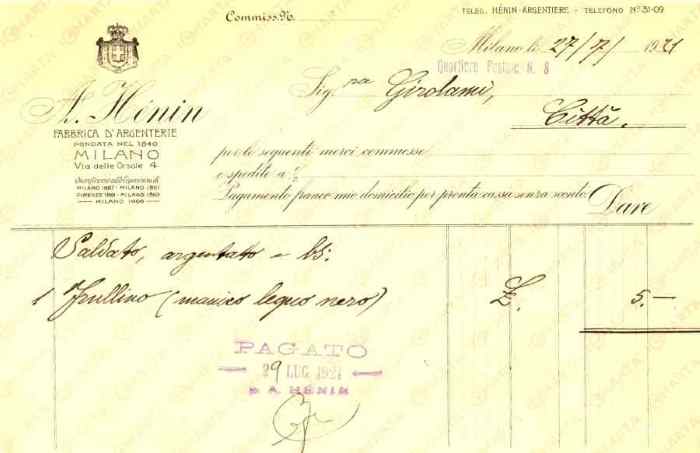 Commiss. N.
TELEG. HÉNIN-ARGENTIERE - TELEFONO N° 31-09
Milano li 27/7/1921
Quartiere Postale N. 8
Sig.ra Girolami,
Città.
A. Hénin
FABBRICA D'ARGENTERIE
FONDATA NEL 1840
MILANO
Via delle Orsole 4
MILANO 1887 - MILANO 1891
MILANO 1906
per le seguenti merci commesse
e spedite a 1/2
Pagamento franco mio domicilio per pronta cassa senza sconto.
Dare
Saldato, argentato e
1 frullino (manico legno nero) £. 5.-
PAGATO
29 LUG 1921
A. HÉNIN
CHARTA